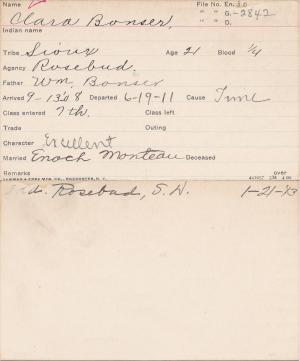 Name File No. En. 30
Clara Bonser, " " G.-2842
Indian name " " D.
Tribe Sioux Age 21 Blood 1/4
Agency Rosebud.
Father Wm. Bonser
Arrived 9-13-08 Departed 6-19-11 Cause Time
Class entered 7th. Class left
Trade Outing
Character Excellent
Married Enoch Monteau Deceased
Remarks over
Rosebud, S. D. 1-21-13